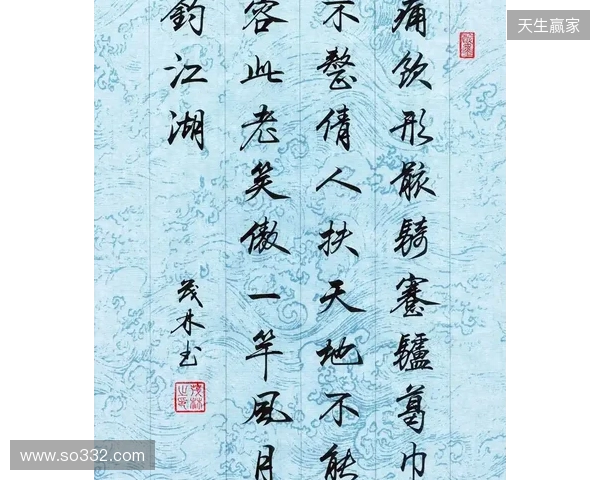 天生赢家
痛飲形骸騎蹇驢葛巾
不整倩人扶天地不能
容此老笑傲一竿風月
釣江湖
茂林书
www.so332.com